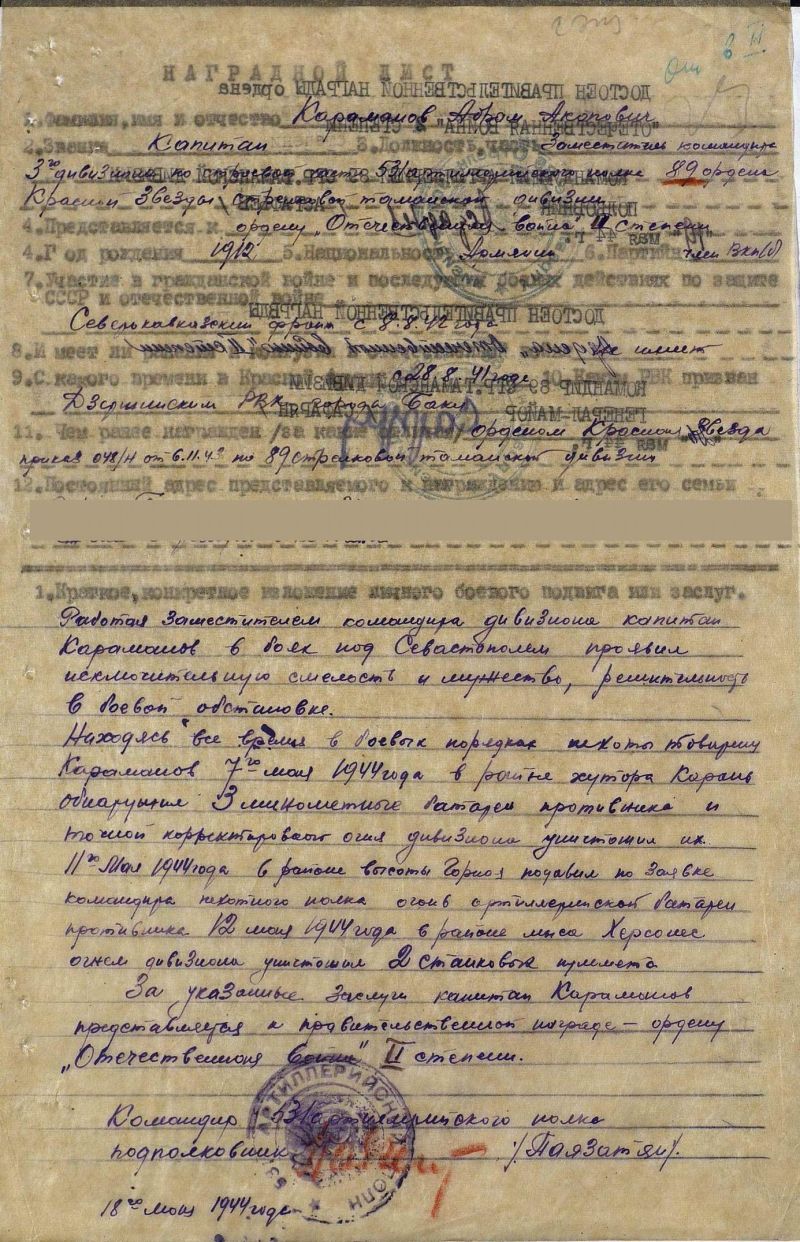 НАГРАДНОЙ ЛИСТ
1. Фамилия, имя и отчество Караманов Абрам Акопович
2. Звание Капитан 3. Должность, часть Заместитель командира
3го дивизиона по строевой части 531 артиллерийского полка 89 ордена
Красной Звезды стрелковой таманской дивизии
4. Представляется к ордену „Отечественная война" II степени
4. Год рождения 1912 5. Национальность Армянин 6. Партийн член ВКП(б)
7. Участие в гражданской войне и последующих боевых действиях по защите
СССР и отечественной войне
Северькавказский фронт с 8.8.42 года
8. Имеет ли не имеет
9. С какого времени в Красной с 28.8.41 года 10. Каким РВК призван
Дзержинским РВК города Баку
11. Чем ранее награжден /за какие орденом Красной Звезда
приказ 048/Н от 6.11.43 по 89 стрелковой таманской дивизии
12. Постоянный адрес представляемого к награждению и адрес его семьи
1. Краткое, конкретное изложение личного боевого подвига или заслуг.
Работая заместителем командира дивизиона капитан
Караманов в боях под Севастополем проявил
исключительную смелость и мужество, решительность
в боевой обстановке.
Находясь все время в боевых порядках пехоты товарищ
Караманов 7го мая 1944 года в районе хутора Карань
обнаружил 3 минометные батареи противника и
точной корректировкой огня дивизиона уничтожил их.
11го Мая 1944 года в районе высоты Горная подавил по заявке
командира пехотного полка огонь артиллерийской батареи
противника 12 мая 1944 года в районе мыса Херсонес
огнем дивизиона уничтожил 2 станковых пулемета
За указанные заслуги капитан Караманов
представляется к правительственной награде — ордену
„Отечественная война" II степени.
Командир 531 артиллерийского полка
подполковник /Паязатян/.
18го мая 1944 года